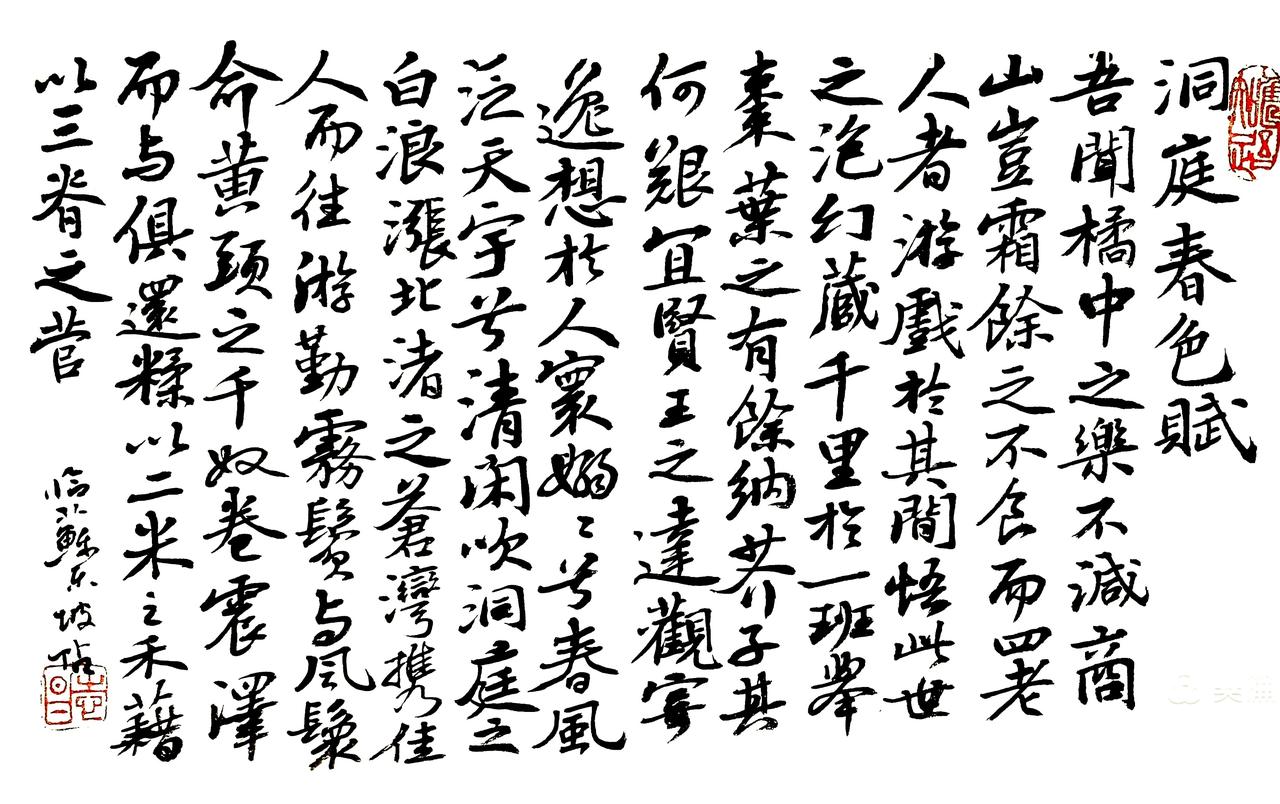 洞庭春色賦
吾聞橘中之樂不減商
山豈霜餘之不食而四老
人者游戲於其間悟此世
之泡幻藏千里於一班舉
棗葉之有餘納芥子其
何艱宜賢王之達觀寄
逸想於人寰嫋〻兮春風
泛天宇兮清閑吹洞庭之
白浪漲北渚之蒼灣攜佳
人而往游勤霧鬢與風鬟
命黃頭之千奴卷震澤
而与俱還糅以二米之禾藉
以三脊之菅
臨 蘇東坡帖